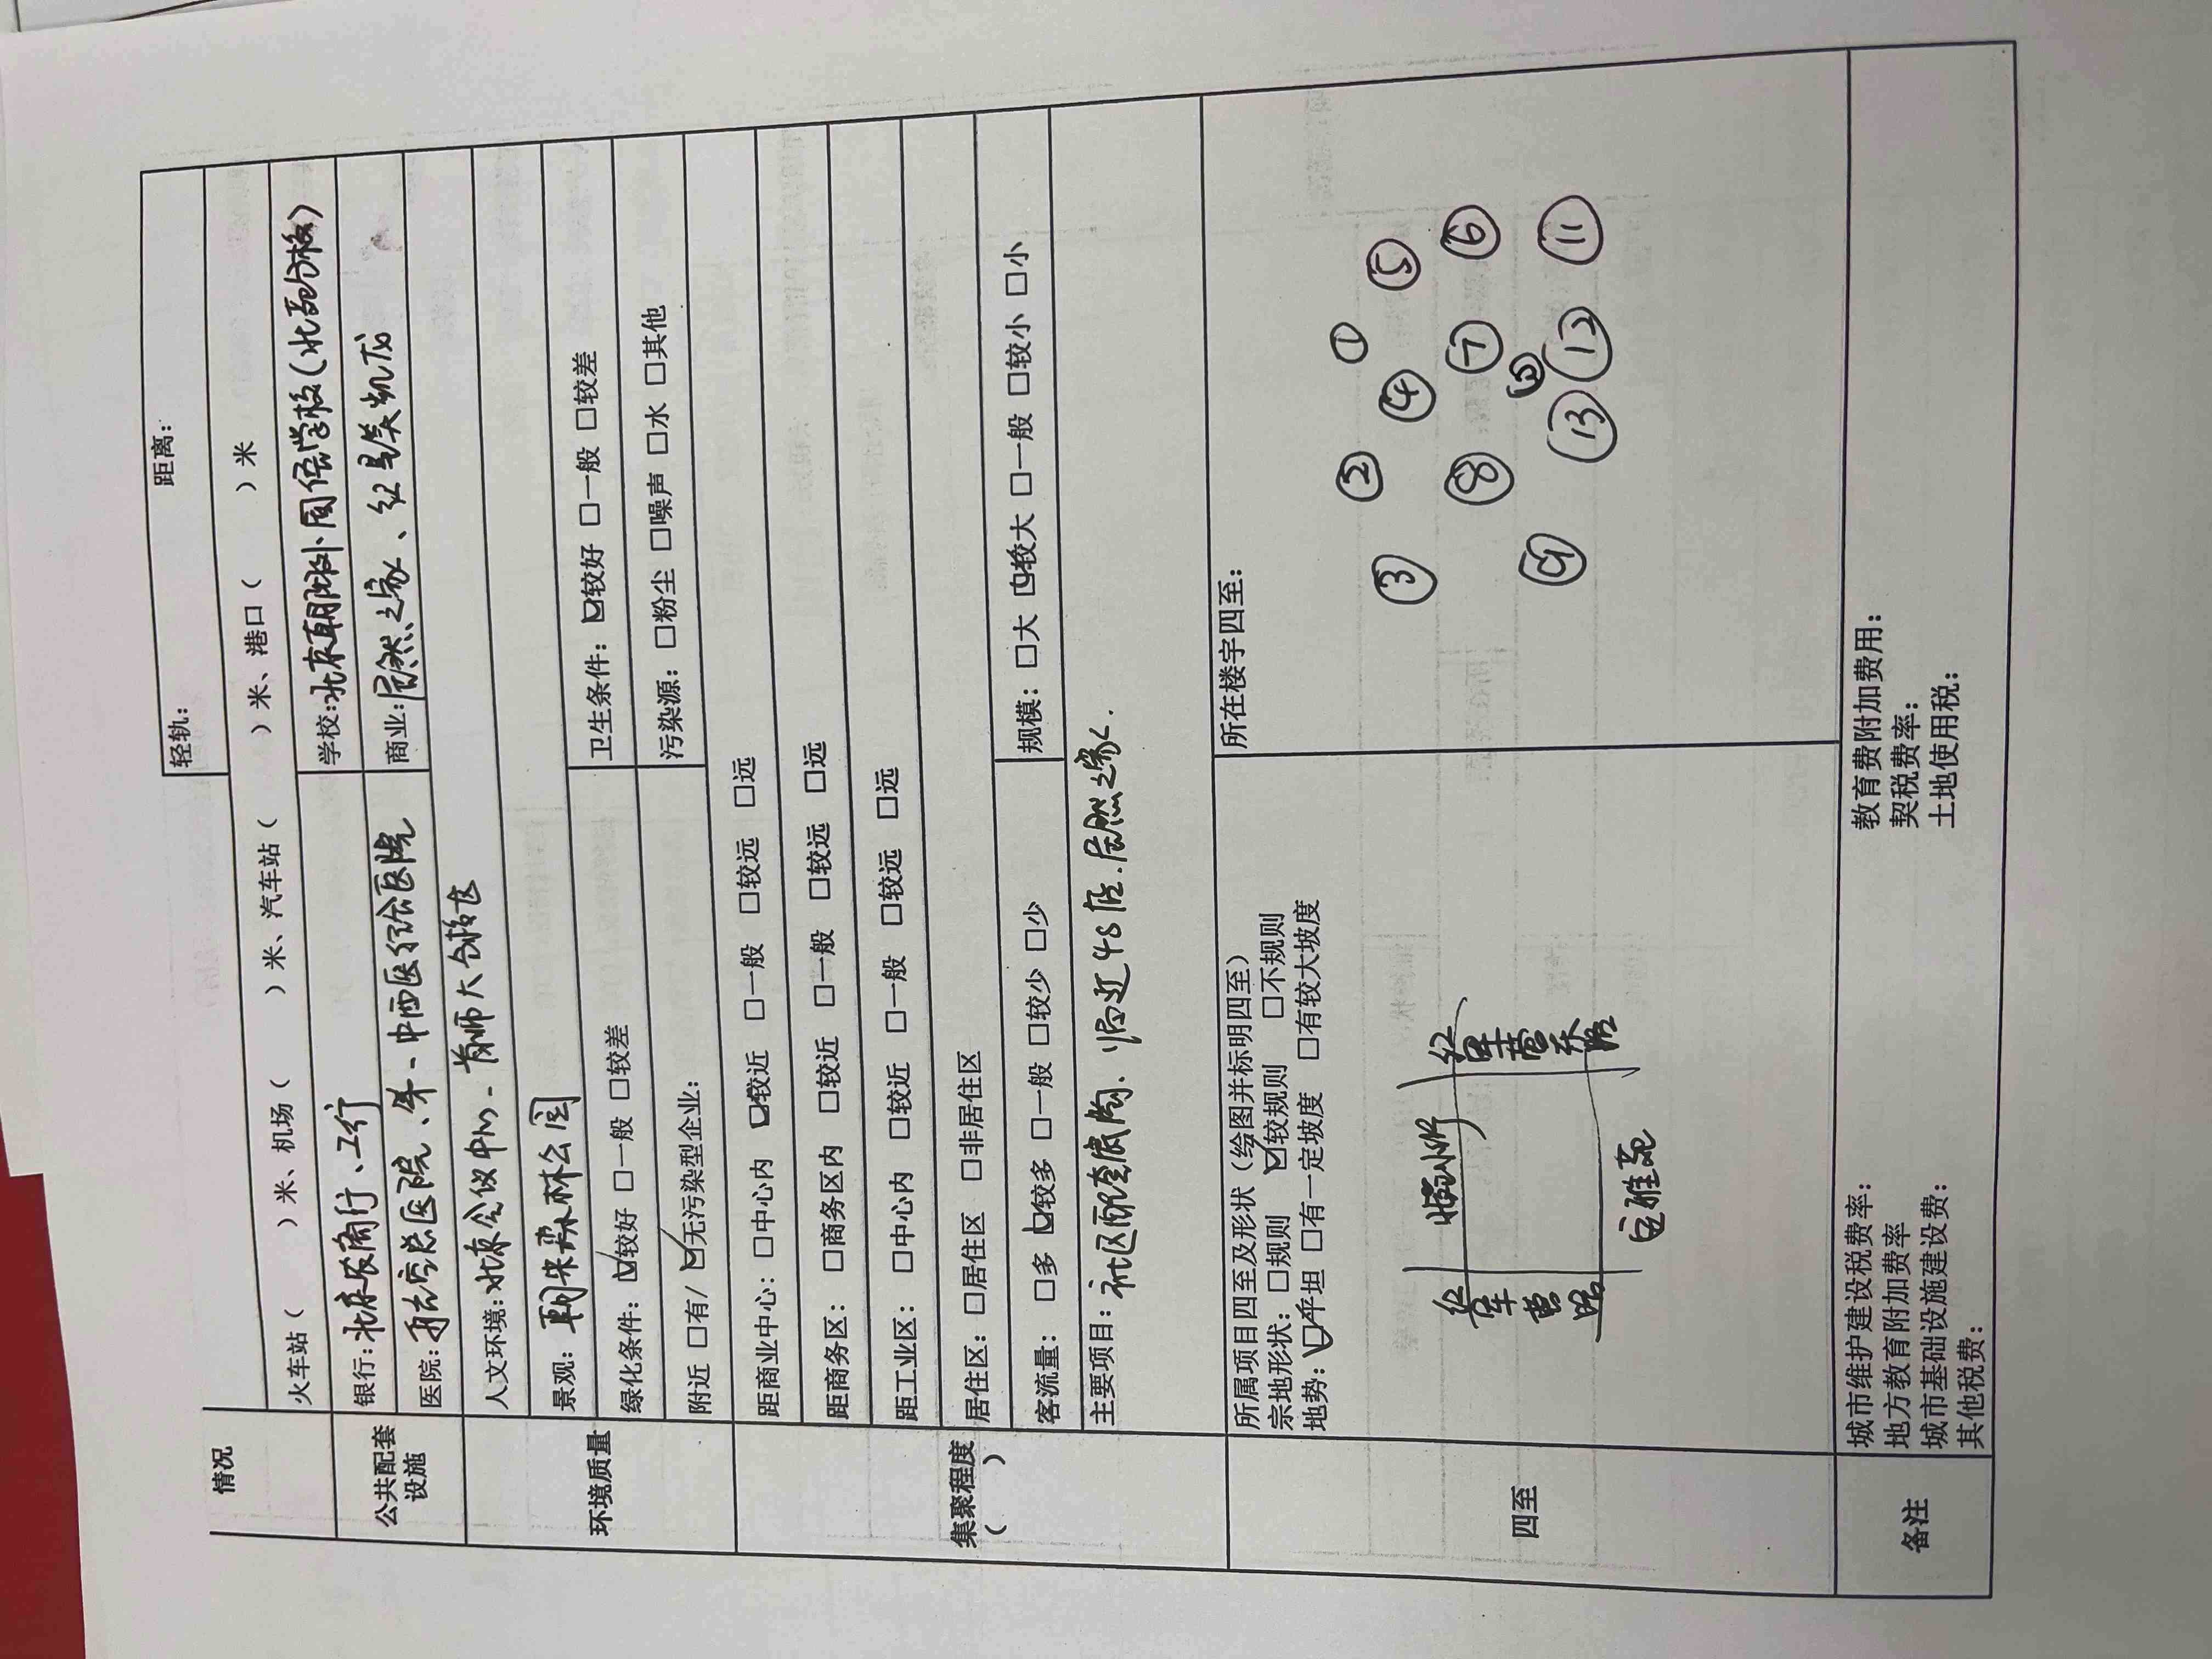 情况
轻轨： 距离：
火车站（ ）米、机场（ ）米、汽车站（ ）米、港口（ ）米
公共配套设施
银行：北京农商行、工行
学校：北京朝阳外国语学校（北苑分校）
医院：航空总医院、第一中西医结合医院
商业：居然之家、红星美凯龙
环境质量
人文环境：北京会议中心、首师大合校区
景观：朝来森林公园
绿化条件：☑较好 □一般 □较差
卫生条件：☑较好 □一般 □较差
附近 □有/ ☑无污染型企业：
污染源：□粉尘 □噪声 □水 □其他
集聚程度
（ ）
距商业中心：□中心内 ☑较近 □一般 □较远 □远
距商务区：□商务区内 □较近 □一般 □较远 □远
距工业区：□中心内 □较近 □一般 □较远 □远
居住区：□居住区 □非居住区
客流量：□多 ☑较多 □一般 □较少 □少
规模：□大 ☑较大 □一般 □较小 □小
主要项目：社区配套底商. 临近4S店.居然之家.
四至
所属项目四至及形状（绘图并标明四至）
宗地形状：□规则 ☑较规则 □不规则
地势：☑平坦 □有一定坡度 □有较大坡度
红军营路
红军营东路
所在楼宇四至：
①
②
③
④
⑤
⑥
⑦
⑧
⑨
⑩
⑪
⑫
⑬
备注
城市维护建设税费率：
地方教育附加费率
城市基础设施建设费：
其他税费：
教育费附加费用：
契税费率：
土地使用税：